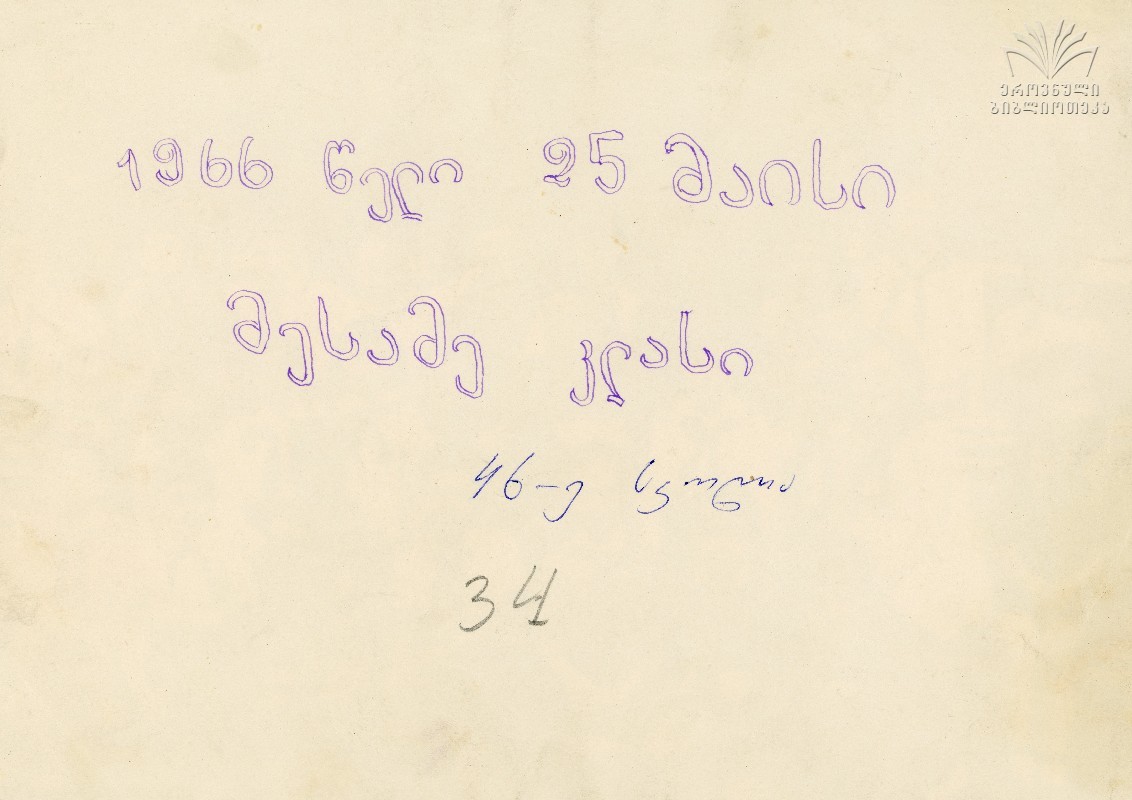 ეროვნული
ბიბლიოთეკა
1966 წელი 25 მაისი
მესამე კლასი
46-ე სკოლა
34